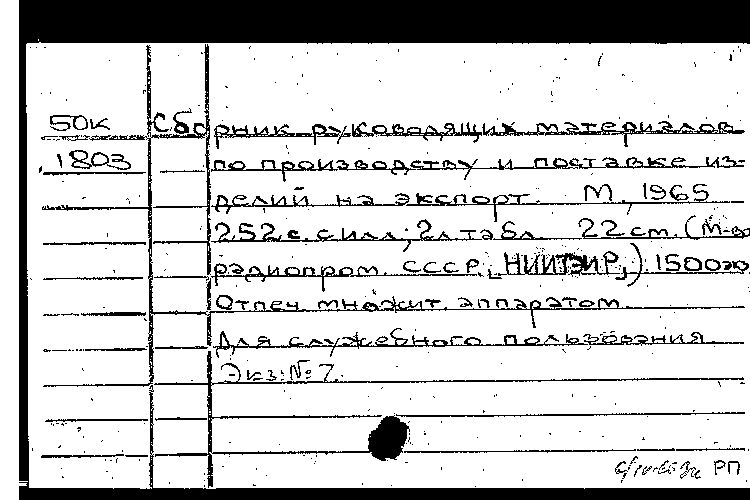 50к Сборник руководящих материалов
1803 по производству и поставке из-
делий на экспорт. М., 1965
252 с. с илл; 2л табл. 22 см. (М-во
радиопром. СССР, НИИТЭИР,). 1500экз
Отпеч. множит. аппаратом.
Для служебного пользования
Экз. № 7.
РП